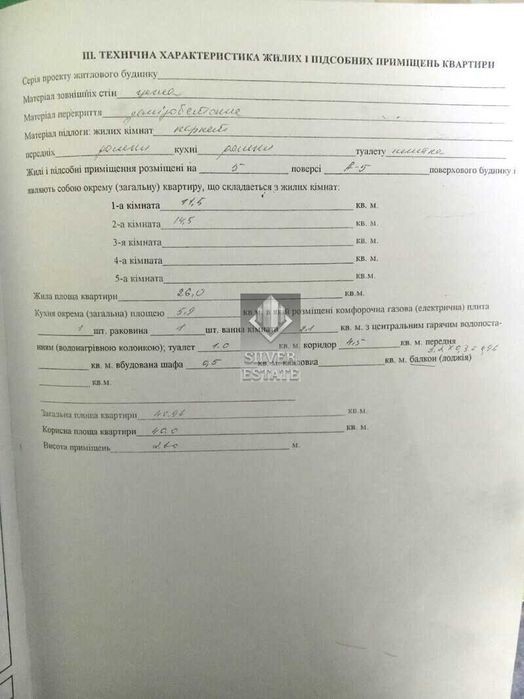 III. ТЕХНІЧНА ХАРАКТЕРИСТИКА ЖИЛИХ І ПІДСОБНИХ ПРИМІЩЕНЬ КВАРТИРИ
Серія проекту житлового будинку
Матеріал зовнішніх стін цегла
Матеріал перекриття залізобетонне
Матеріал підлоги: жилих кімнат паркет
передніх кухні туалету плитка
Жилі і підсобні приміщення розміщені на 5 поверсі 5 поверхового будинку і
являють собою окрему (загальну) квартиру, що складається з жилих кімнат:
1-а кімната 11,5 кв. м.
2-а кімната 14,5 кв. м.
3-я кімната кв. м.
4-а кімната кв. м.
5-а кімната кв.м.
Жила площа квартири 26,0 кв.м.
Кухня окрема (загальна) площею 5.9 кв.м. в якій розміщені комфорочна газова (електрична) плита
1 шт. раковина 1 шт. ванна кімната 2.1 кв. м. з центральним гарячим водопоста-
нням (водонагрівною колонкою); туалет 1.0 кв. м. коридор 4.5 кв. м. передня
3.2 x 0,3 = 0,96
кв. м. вбудована шафа 0,5 кв. м. кладовка кв. м. балкон (лоджія)
кв.м.
SILVER
ESTATE
Загальна площа квартири 40.96 кв.м.
Корисна площа квартири 40.0 кв. м.
Висота приміщень м.